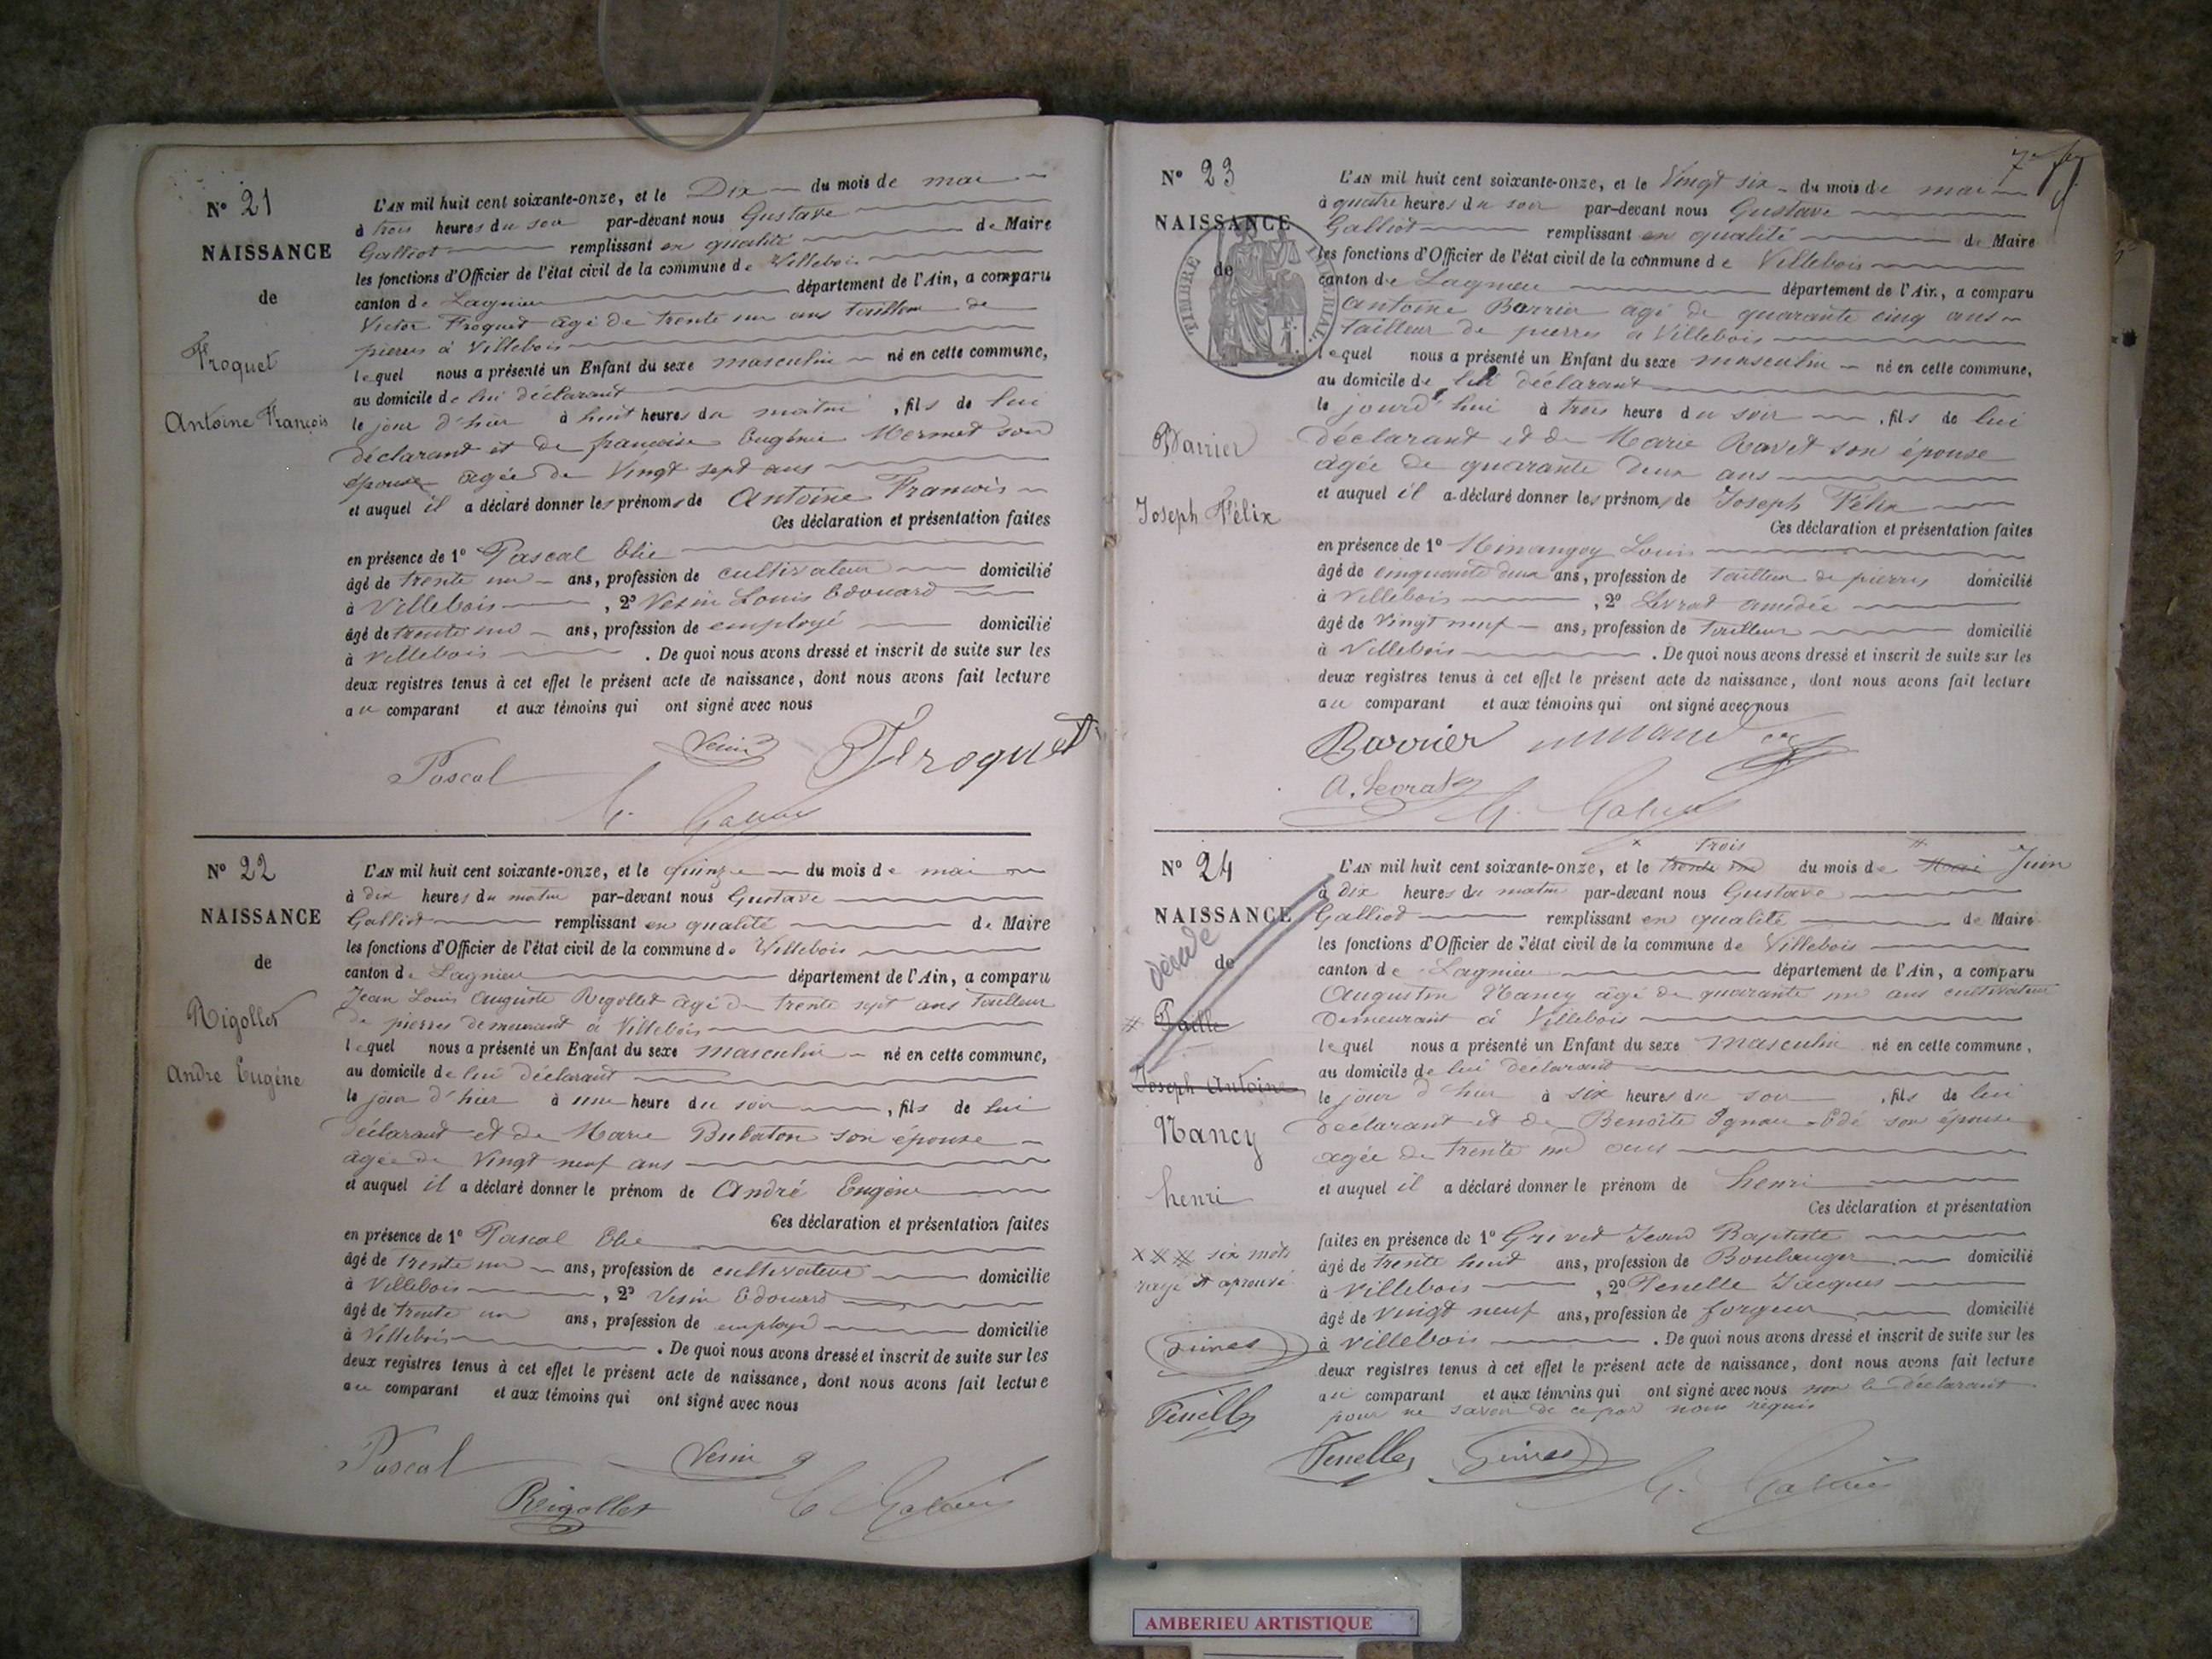 N° 21
NAISSANCE
de
Froquet
Antoine François
L'AN mil huit cent soixante-onze, et le Dix du mois de mai
à trois heures du soir par-devant nous Gustave
Galliot remplissant en qualité de Maire
les fonctions d'Officier de l'état civil de la commune de Villebois
canton de Lagnieu département de l'Ain, a comparu
Victor Froquet âgé de trente un ans tailleur de
pierres à Villebois
lequel nous a présenté un Enfant du sexe masculin né en cette commune,
au domicile de lui déclarant
le jour d'hier à huit heures du matin, fils de lui
déclarant et de françoise Eugénie Mermet son
épouse agée de Vingt sept ans
et auquel il a déclaré donner les prénoms de Antoine François
Ces déclaration et présentation faites
en présence de 1° Pascal Elie
âgé de trente un ans, profession de cultivateur domicilié
à Villebois, 2° Vesin Louis Edouard
âgé de trente un ans, profession de employé domicilié
à Villebois. De quoi nous avons dressé et inscrit de suite sur les
deux registres tenus à cet effet le présent acte de naissance, dont nous avons fait lecture
au comparant et aux témoins qui ont signé avec nous
Vesin Froquet
Pascal
G. Galliot
N° 22
NAISSANCE
de
Rigollet
André Eugéne
L'AN mil huit cent soixante-onze, et le quinze du mois de mai
à dix heures du matin par-devant nous Gustave
Galliot remplissant en qualité de Maire
les fonctions d'Officier de l'état civil de la commune de Villebois
canton de Lagnieu département de l'Ain, a comparu
Jean Louis Auguste Rigollet âgé de trente sept ans tailleur
de pierres demeurant à Villebois
lequel nous a présenté un Enfant du sexe masculin né en cette commune,
au domicile de lui déclarant
le jour d'hier à une heure du soir, fils de lui
déclarant et de Marie Bubaton son épouse
agée de Vingt neuf ans
et auquel il a déclaré donner le prénom de André Eugéne
Ces déclaration et présentation faites
en présence de 1° Pascal Elie
âgé de trente un ans, profession de cultivateur domicilié
à Villebois, 2° Vesin Edouard
âgé de trente un ans, profession de employé domicilié
à Villebois. De quoi nous avons dressé et inscrit de suite sur les
deux registres tenus à cet effet le présent acte de naissance, dont nous avons fait lecture
au comparant et aux témoins qui ont signé avec nous
Pascal Vesin
Rigollet G Galliot
N° 23
NAISSANCE
de
TIMBRE IMPERIAL.
Barrier
Joseph Félix
L'AN mil huit cent soixante-onze, et le Vingt six du mois de mai
à quatre heures du soir par-devant nous Gustave
Galliot remplissant en qualité de Maire
les fonctions d'Officier de l'état civil de la commune de Villebois
canton de Lagnieu département de l'Ain, a comparu
Antoine Barrier agé de quarante cinq ans
tailleur de pierres à Villebois
lequel nous a présenté un Enfant du sexe masculin né en cette commune,
au domicile de lui déclarant
le jourd'hui à trois heure du soir, fils de lui
déclarant et de Marie Ravet son épouse
agée de quarante deux ans
et auquel il a déclaré donner les prénoms de Joseph Félix
Ces déclaration et présentation faites
en présence de 1° Minangoy Louis
âgé de cinquante deux ans, profession de tailleur de pierres domicilié
à Villebois, 2° Levrat amédée
âgé de Vingt neuf ans, profession de tailleur domicilié
à Villebois. De quoi nous avons dressé et inscrit de suite sur les
deux registres tenus à cet effet le présent acte de naissance, dont nous avons fait lecture
au comparant et aux témoins qui ont signé avec nous
Barrier
A. Levrat G. Galliot
N° 24
NAISSANCE
de
décédé
# Paille
Joseph Antoine
Nancy
henri
x x # six mots
rayé # aprouvé
Grivet
Tenelle
trois
L'AN mil huit cent soixante-onze, et le trente un du mois de Mai Juin
à dix heures du matin par-devant nous Gustave
Galliot remplissant en qualité de Maire
les fonctions d'Officier de l'état civil de la commune de Villebois
canton de Lagnieu département de l'Ain, a comparu
Augustin Nancy âgé de quarante un ans cultivateur
Demeurant à Villebois
lequel nous a présenté un Enfant du sexe masculin né en cette commune,
au domicile de lui déclarant
le jour d'hier à six heures du soir, fils de lui
déclarant et de Benoîte son épouse
agée de trente un ans
et auquel il a déclaré donner le prénom de henri
Ces déclaration et présentation
faites en présence de 1° Grivet Jean Baptiste
âgé de trente huit ans, profession de Boulanger domicilié
à Villebois, 2° Tenelle Jacques
âgé de vingt neuf ans, profession de forgeur domicilié
à Villebois. De quoi nous avons dressé et inscrit de suite sur les
deux registres tenus à cet effet le présent acte de naissance, dont nous avons fait lecture
au comparant et aux témoins qui ont signé avec nous non le déclarant
pour ne savoir de ce par nous requis
Tenelle Grivet G. Galliot
AMBERIEU ARTISTIQUE